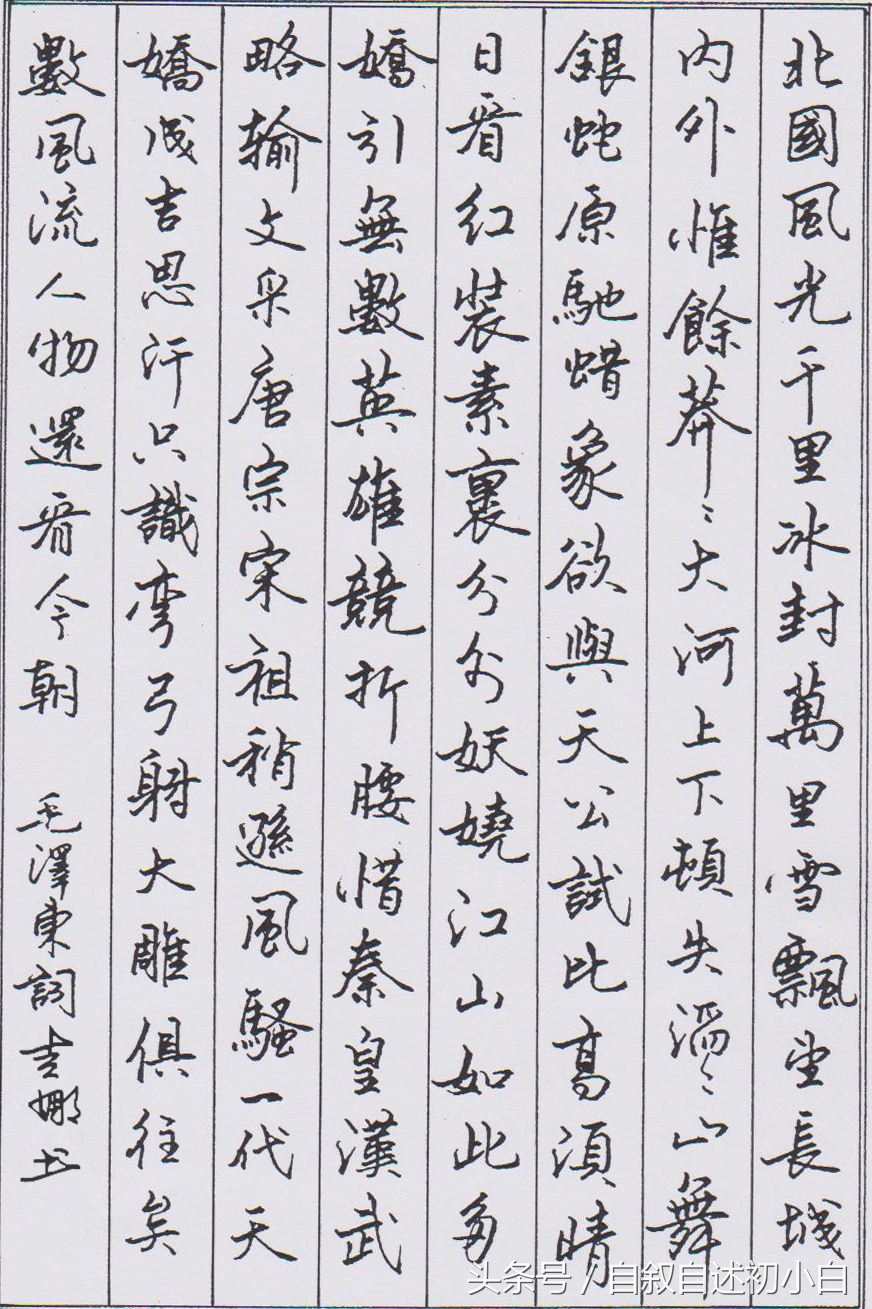 北國風光千里冰封萬里雪飄望長城
内外惟餘莽々大河上下頓失滔々山舞
銀蛇原馳蜡象欲與天公試比高須晴
日看红裝素裹分外妖嬈江山如此多
嬌引無數英雄競折腰惜秦皇漢武
略輸文采唐宗宋祖稍遜風騷一代天
嬌成吉思汗只識弯弓射大雕俱往矣
數風流人物還看今朝 毛澤東詞吉娜书
头条号 / 自叙自述初小白